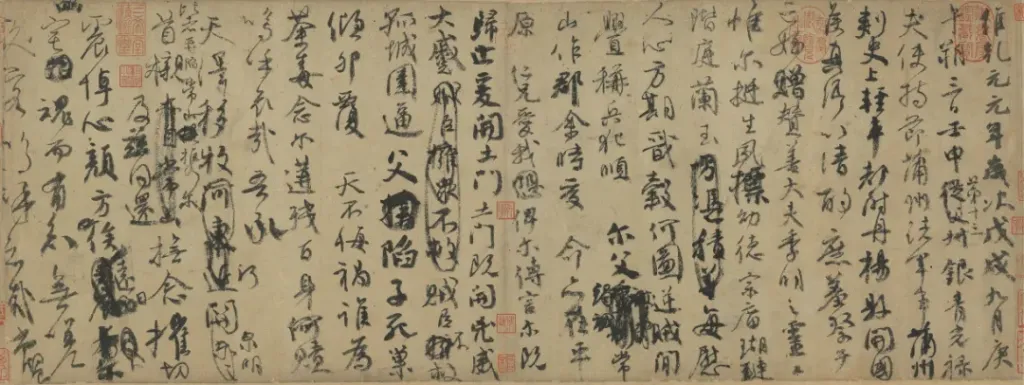 維乾元元年歲次戊戌九月庚
午朔三日壬申第十三叔銀青光祿
夫使持節蒲州諸軍事蒲州
刺史上輕車都尉丹楊縣開國
侯真卿以清酌庶羞祭于
亡姪贈贊善大夫季明之靈曰
惟爾挺生夙標幼德宗廟瑚璉
階庭蘭玉方憑積善每慰
人心方期戩穀何圖逆賊閒
釁稱兵犯順爾父竭誠常
山作郡余時受命亦在平
原仁兄愛我俾爾傳言爾既
歸止爰開土門土門既開凶威
大蹙賊臣擁眾不救賊臣不救
孤城圍逼父陷子死巢
傾卵覆天不悔禍誰為
荼毒念爾遘殘百身何贖
嗚呼哀哉吾承
天澤移牧河東近河關泉明
比者再陷常山攜爾
首櫬及茲同還撫念摧切
震悼心顏方俟遠日
幽宅魂而有知無嗟
久客嗚呼哀哉尚饗